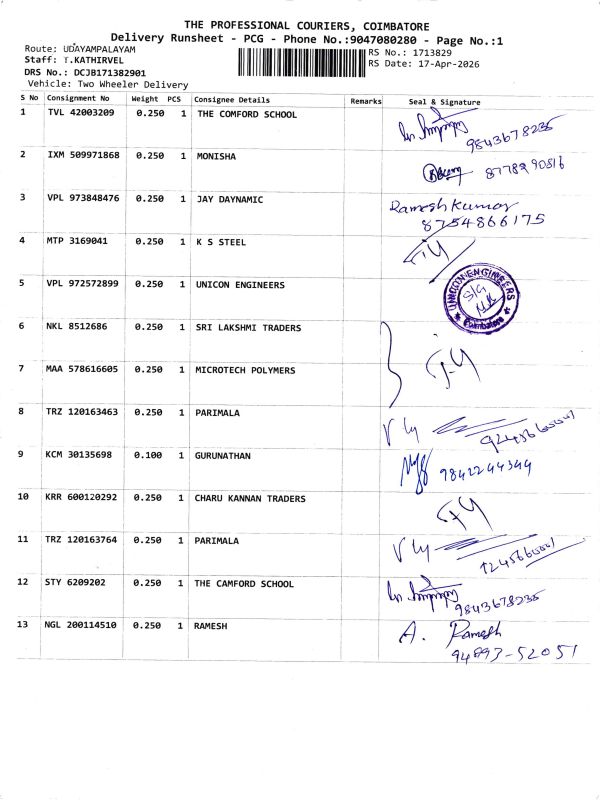 THE PROFESSIONAL COURIERS, COIMBATORE
Delivery Runsheet - PCG - Phone No.:9047080280 - Page No.:1
Route: UDAYAMPALAYAM
RS No.: 1713829
Staff: T.KATHIRVEL
RS Date: 17-Apr-2026
DRS No.: DCJB171382901
Vehicle: Two Wheeler Delivery
S No Consignment No Weight PCS Consignee Details Remarks Seal & Signature
1 TVL 42003209 0.250 1 THE COMFORD SCHOOL
9843678235
2 IXM 509971868 0.250 1 MONISHA 8778290816
3 VPL 973848476 0.250 1 JAY DAYNAMIC Ramesh Kumar
8754866175
4 MTP 3169041 0.250 1 K S STEEL
5 VPL 972572899 0.250 1 UNICON ENGINEERS UNICON ENGINEERS
Coimbatore
6 NKL 8512686 0.250 1 SRI LAKSHMI TRADERS
7 MAA 578616605 0.250 1 MICROTECH POLYMERS
8 TRZ 120163463 0.250 1 PARIMALA
9 KCM 30135698 0.100 1 GURUNATHAN 9842244344
10 KRR 600120292 0.250 1 CHARU KANNAN TRADERS
11 TRZ 120163764 0.250 1 PARIMALA
12 STY 6209202 0.250 1 THE CAMFORD SCHOOL
9843678235
13 NGL 200114510 0.250 1 RAMESH A. Ramesh
94893-52051